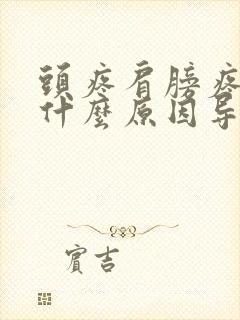 頭疼肩膀疼
什麼原因导
賓吉